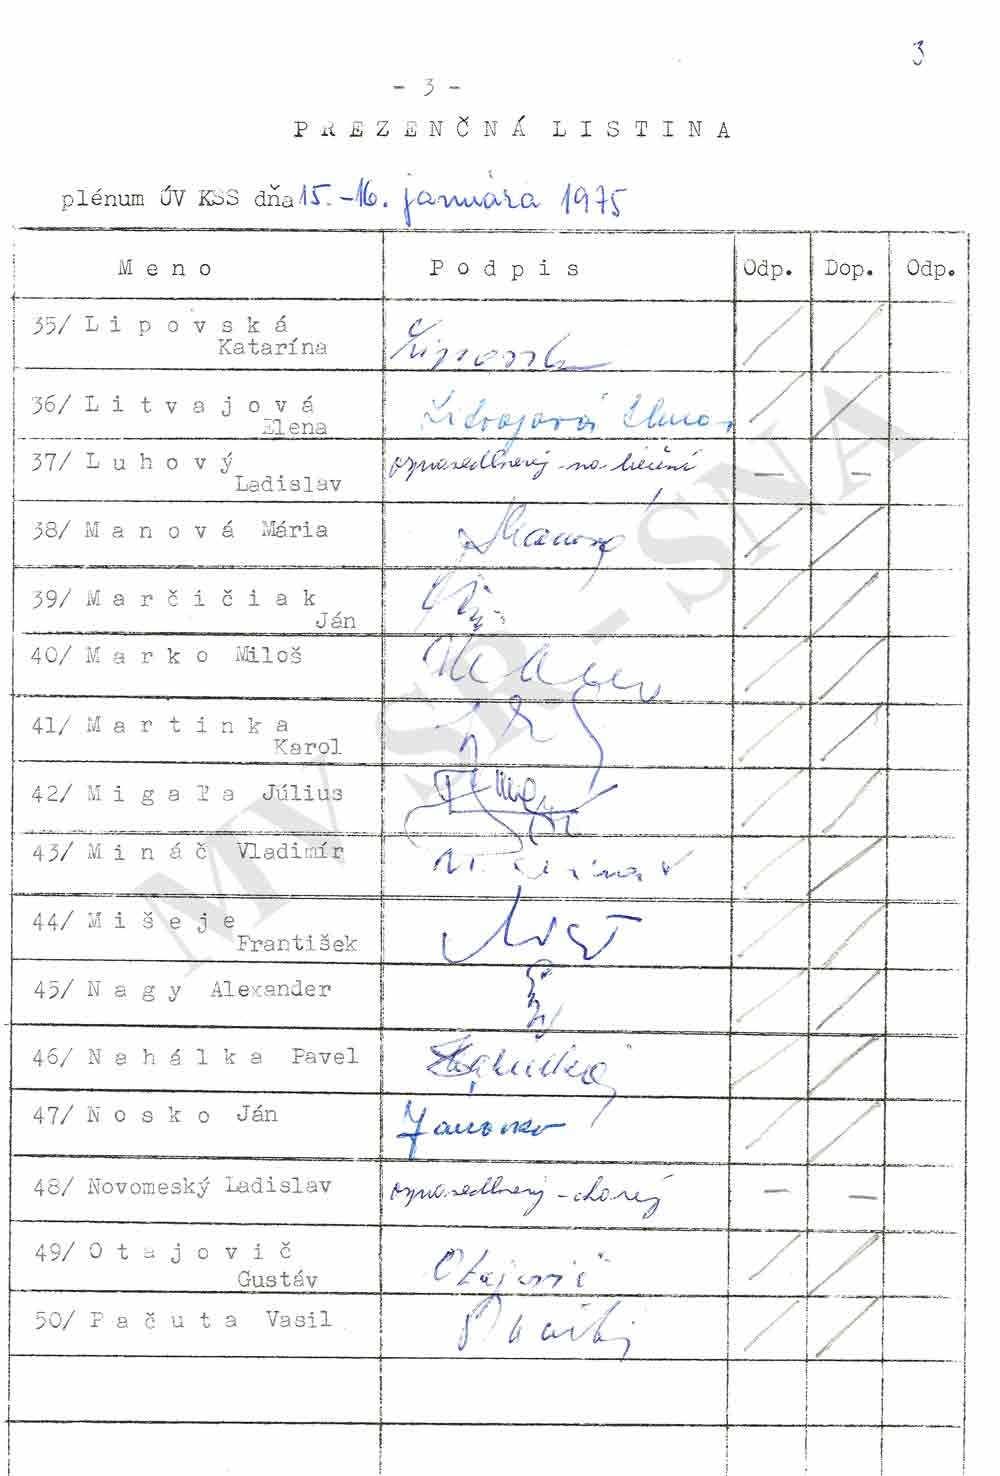 3
- 3 -
PREZENČNÁ LISTINA
plénum ÚV KSS dňa 15.-16. januára 1975
Meno Podpis Odp. Dop. Odp.
35/ Lipovská
Katarína
36/ Litvajová Litvajová Elena
Elena
37/ Luhový ospravedlnený - na liečení
Ladislav
38/ Manová Mária Manová
39/ Marčičiak
Ján
40/ Marko Miloš
41/ Martinka
Karol
42/ Migaľa Július
43/ Mináč Vladimír
44/ Mišeje
František
45/ Nagy Alexander
46/ Nahálka Pavel
47/ Nosko Ján
48/ Novomeský Ladislav ospravedlnený - chorý
49/ Otajovič Otajovič
Gustáv
50/ Pačuta Vasil
MV SR - SNA